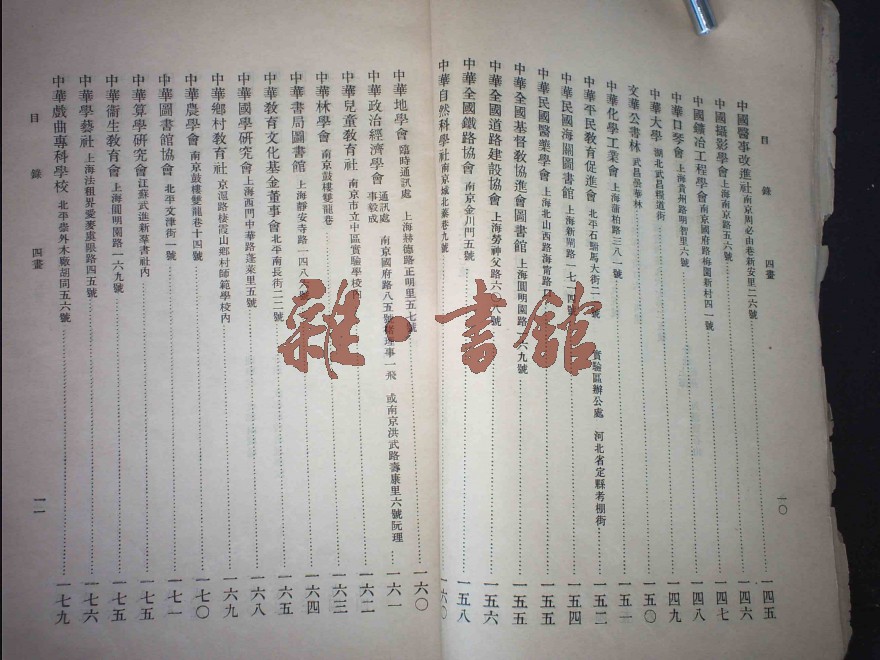 目錄 四畫 一〇
中國醫事改進社 南京周必由巷新安里二六號 一四五
中國攝影學會 上海南京路五六號 一四六
中國鑛冶工程學會 南京國府路梅園新村四一號 一四七
中華口琴會 上海貴州路明智里六號 一四八
中華大學 湖北武昌糧道街 一四九
文華公書林 武昌曇華林 一五〇
中華化學工業會 上海蒲柏路三八一號 一五一
中華平民教育促進會 北平石駙馬大街二一號 實驗區辦公處 河北省定縣考棚街 一五二
中華民國海關圖書館 上海新閘路一七一四號 一五四
中華民國醫藥學會 上海北山西路海甯路口 一五五
中華全國基督教協進會圖書館 上海圓明園路一六九號 一五五
中華全國道路建設協會 上海勞神父路六〇八號 一五六
中華全國鐵路協會 南京金川門五號 一五八
中華自然科學社 南京城北蓁巷九號 一六〇
中華地學會 臨時通訊處 上海赫德路正明里五七號 一六〇
中華政治經濟學會 通訊處 南京國府路八五號 理事一飛 或南京洪武路壽康里六號阮理事毅成 一六一
中華兒童教育社 南京市立中區實驗學校內 一六二
中華林學會 南京鼓樓雙龍巷 一六三
中華書局圖書館 上海靜安寺路一四八六號 一六四
中華教育文化基金董事會 北平南長街二二號 一六五
中華國學研究會 上海西門中華路蓬萊里五號 一六八
中華鄉村教育社 京滬路棲霞山鄉村師範學校內 一六九
中華農學會 南京鼓樓雙龍巷十四號 一七〇
中華圖書館協會 北平文津街一號 一七一
中華算學研究會 江蘇武進新羣書社內 一七五
中華衞生教育會 上海圓明園路一六九號 一七五
中華學藝社 上海法租界愛麥虞限路四五號 一七六
中華戲曲專科學校 北平崇外木廠胡同五六號 一七九
目錄 四畫 一一
雜·書館